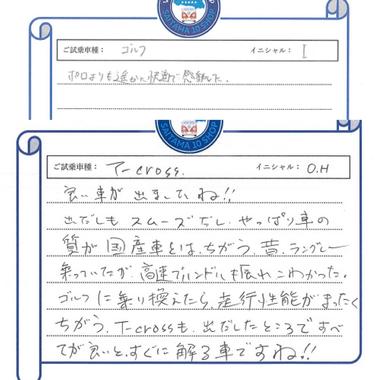 ご試乗車種： ゴルフ イニシャル： I
ポロよりも遥かに快適で感動した。
SAITAMA 10 SHOP
ご試乗車種： T-cross. イニシャル： O.H
良い車が出ましたね!!
出だしもスムーズだし、やっぱり車の
質が国産車とは、ちがう、昔、ラングレー
乗っていたが、高速でハンドルも振れこわかった。
ゴルフに乗り換えたら、走行性能がまったく
ちがう、T-crossも、出だしたところですべ
てが良いと、すぐに解る車ですね!!